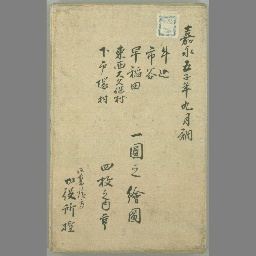 嘉永五子年九月調
牛込
市谷
早稲田
東西大久保村
下戸塚村
一圓之繪圖
四枚之内 壱